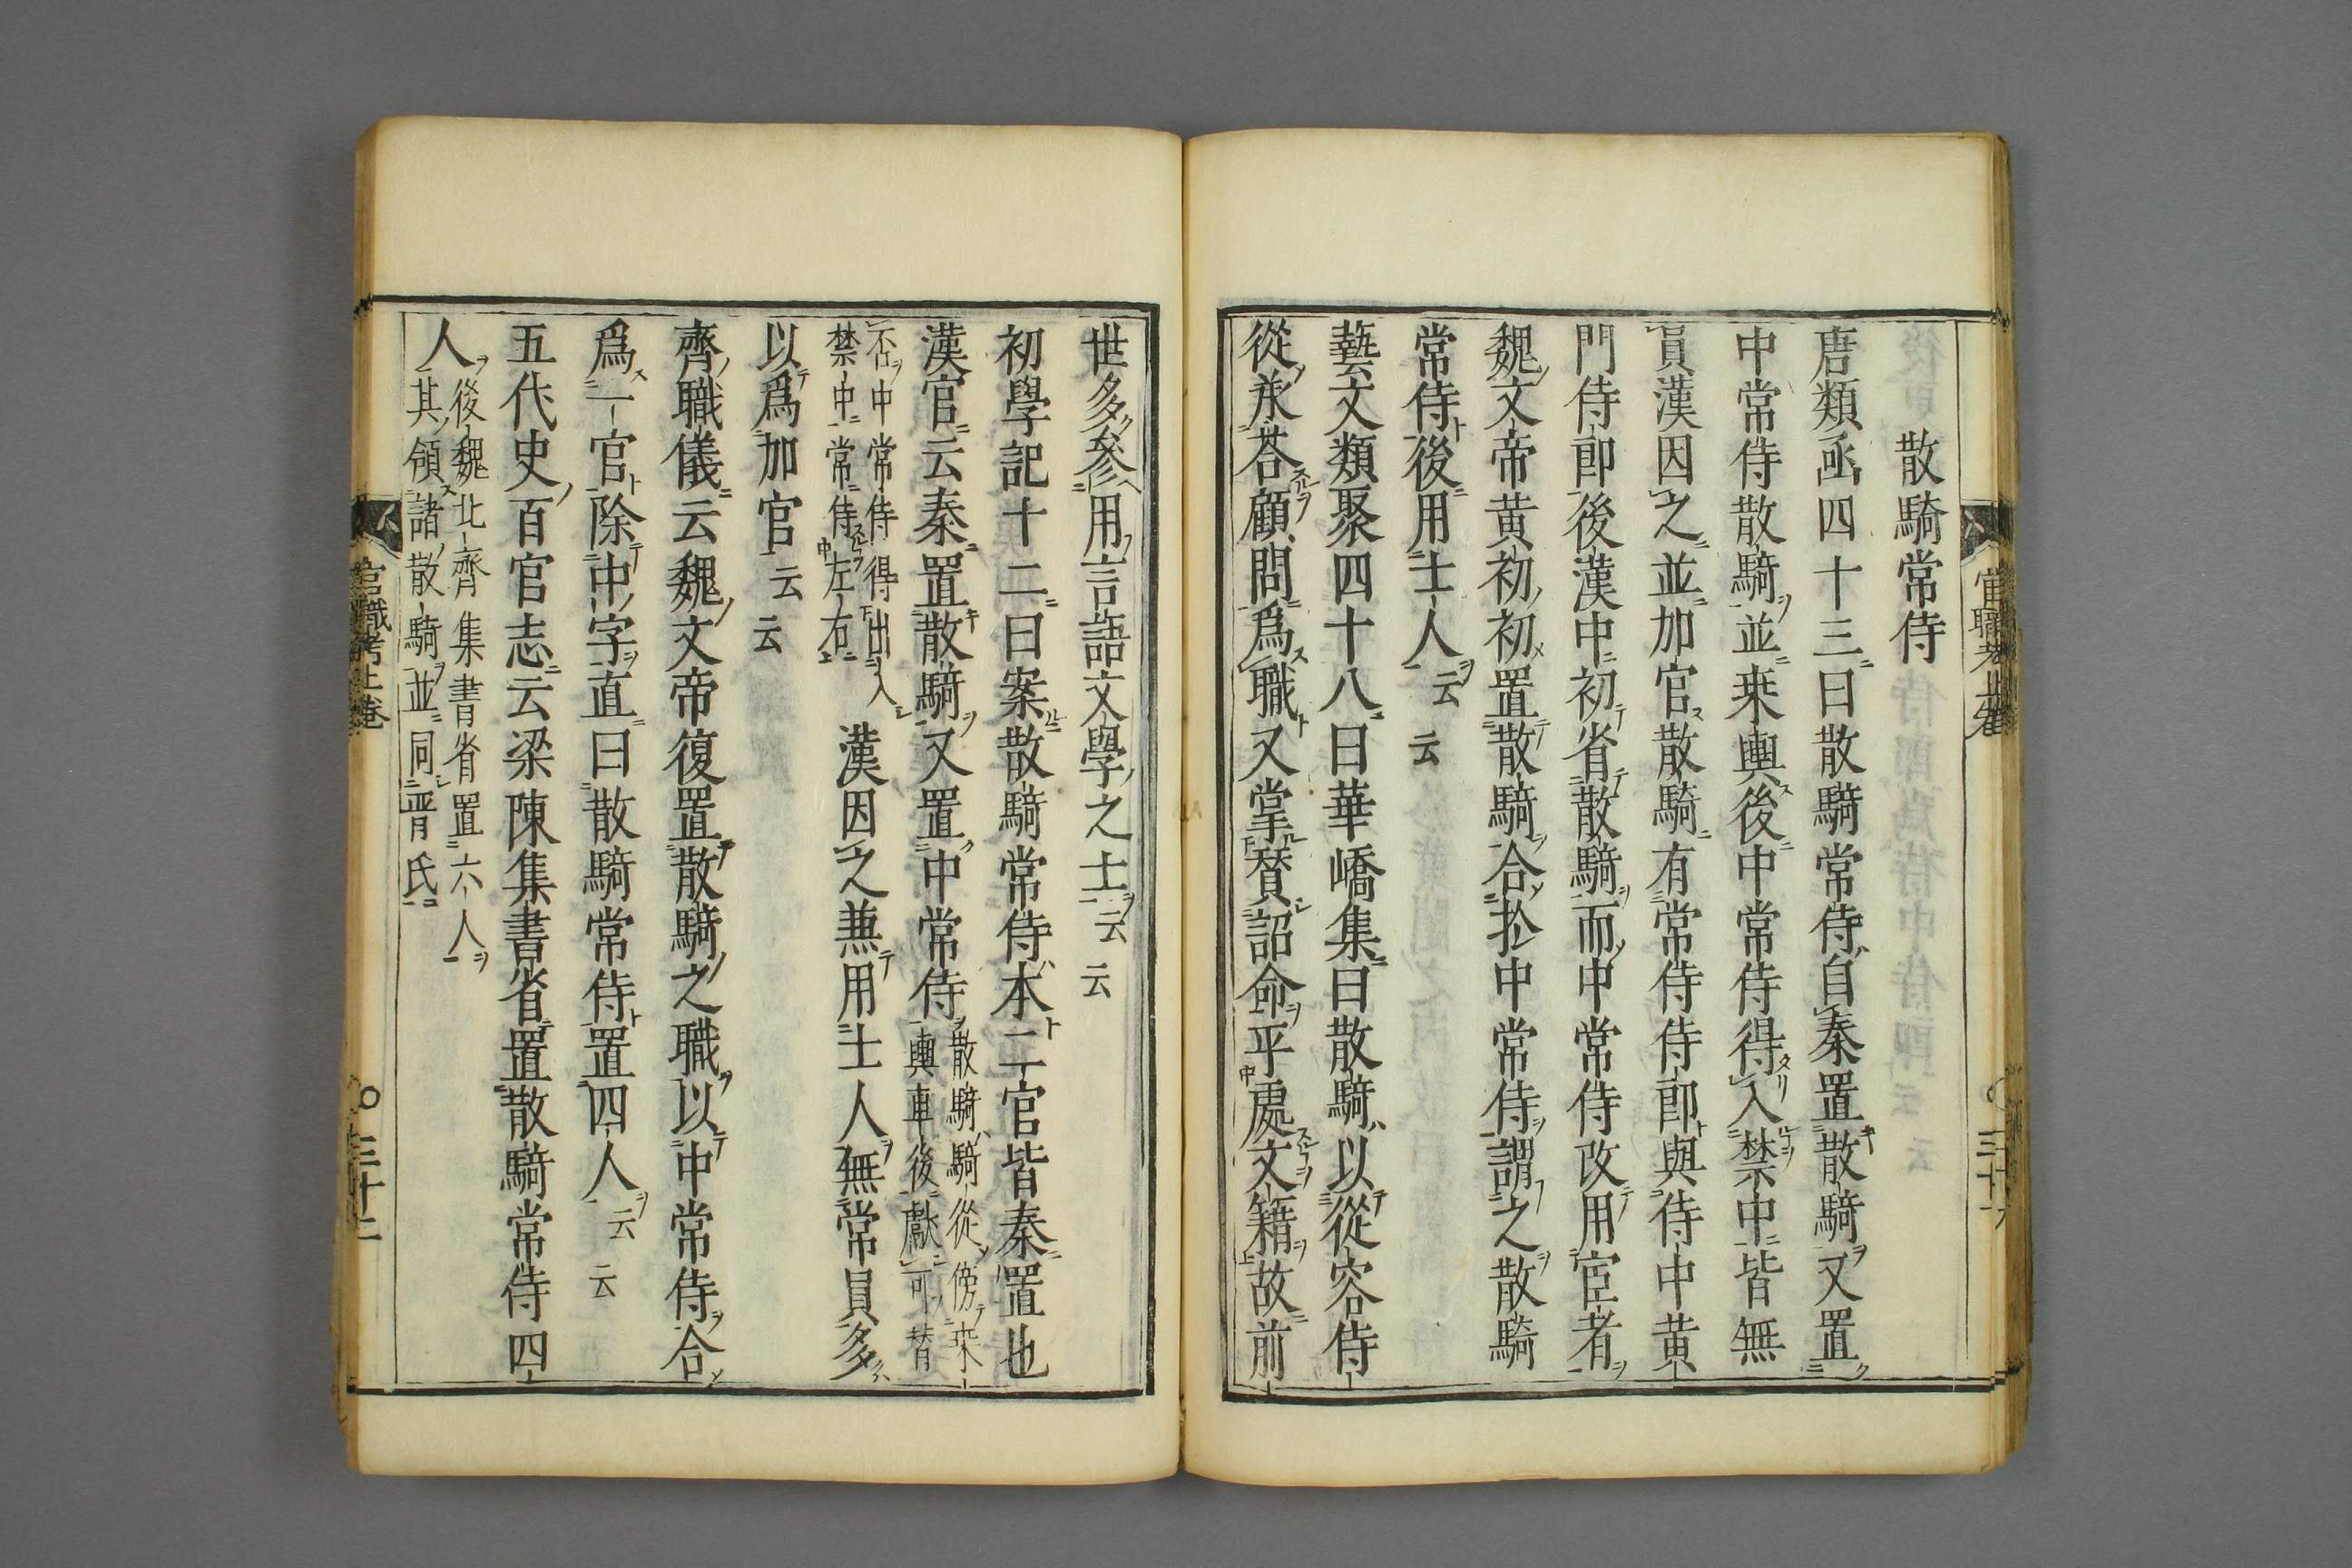 散騎常侍
唐類函四十三曰散騎常侍自秦置散騎又置
中常侍散騎並乗輿後中常侍得入禁中皆無
員漢因之並加官散騎有常侍侍郎與侍中黄
門侍郎後漢中初省散騎而中常侍改用宦者
魏文帝黄初初置散騎合扵中常侍謂之散騎
常侍後用士人云云
藝文類聚四十八曰華嶠集曰散騎以從容侍
從承荅顧問爲職又掌賛詔命平處文籍故前
世多參用言語文學之士云云
初學記十二曰案散騎常侍本二官皆秦置也
漢官云秦置散騎又置中常侍散騎騎從傍乗輿車後獻可替
否中常侍得出入禁中常侍左右漢因之兼用士人無常員多
以爲加官云云
齊職儀云魏文帝復置散騎之職以中常侍合
爲一官除中字直曰散騎常侍置四人云云
五代史百官志云梁陳集書省置散騎常侍四
人後魏北齊集書省置六人其領諸散騎並同晋氏
官職考上巻
三十二